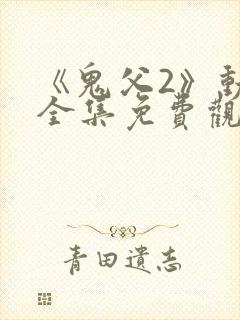 《鬼父2》動
全集免費觀
青田遺志